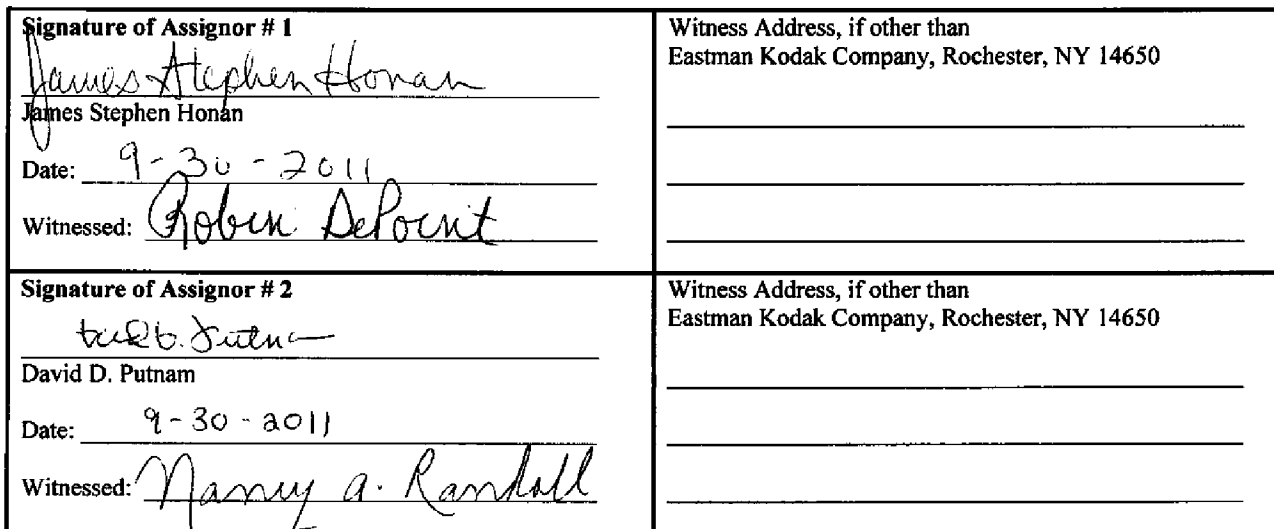 Signature of Assignor # 1
James Stephen Honan
James Stephen Honan
Date: 9-30-2011
Witnessed: Robin DePoint
Witness Address, if other than
Eastman Kodak Company, Rochester, NY 14650
Signature of Assignor # 2
David D. Putnam
Date: 9-30-2011
Witnessed: Nancy A. Randall
Witness Address, if other than
Eastman Kodak Company, Rochester, NY 14650